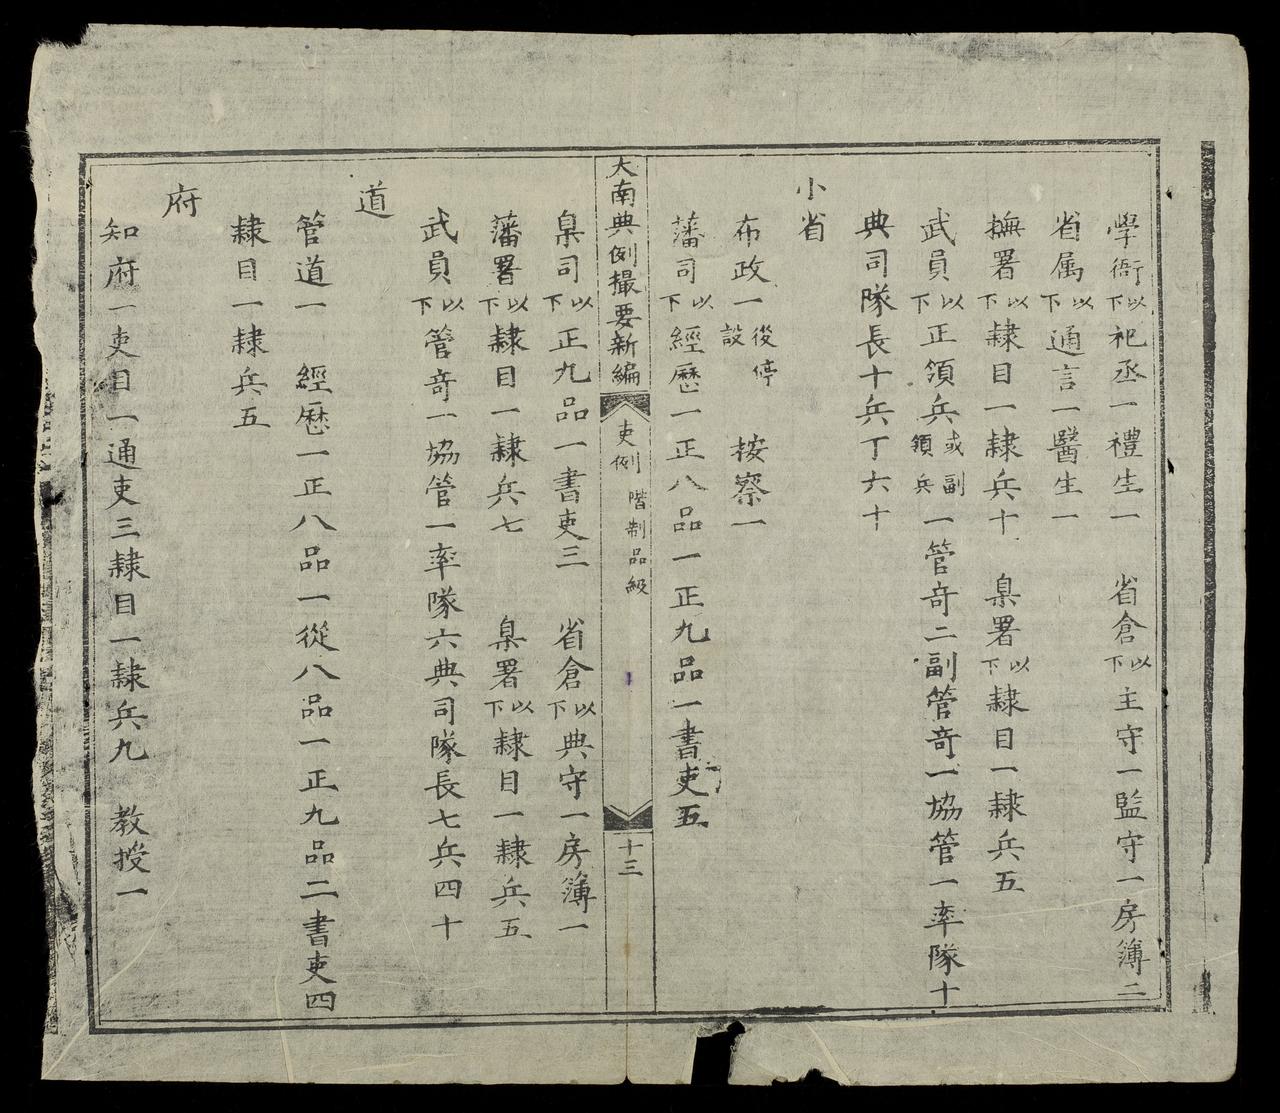 學衙以下祀丞一禮生一　省倉以下主守一監守一房簿二
省属以下通言一醫生一
撫署以下隸目一隸兵十　臬署以下隸目一隸兵五
武員以下正領兵或副領兵一管奇二副管奇一協管一率隊十
典司隊長十兵丁六十
小省
布政一後停設　按察一
藩司以下經歷一正八品一正九品一書吏五
大南典例撮要新編　吏例　階制品級　十三
臬司以下正九品一書吏三　省倉以下典守一房簿一
藩署以下隸目一隸兵七　臬署以下隸目一隸兵五
武員以下管奇一協管一率隊六典司隊長七兵四十
道
管道一　經歷一正八品一從八品一正九品二書吏四
隸目一隸兵五
府
知府一吏目一通吏三隸目一隸兵九　教授一